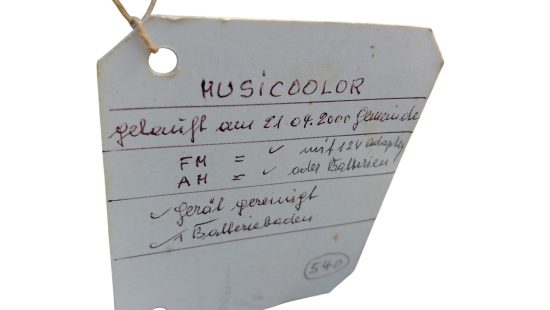 MUSICOOLOR
gekauft am 21.04.2000 Gemeinde
FM = ✓ mit 12V adapter
AM = ✓ oder Batterien
✓ Gerät gereinigt
✓ 1 Batterieboden
540